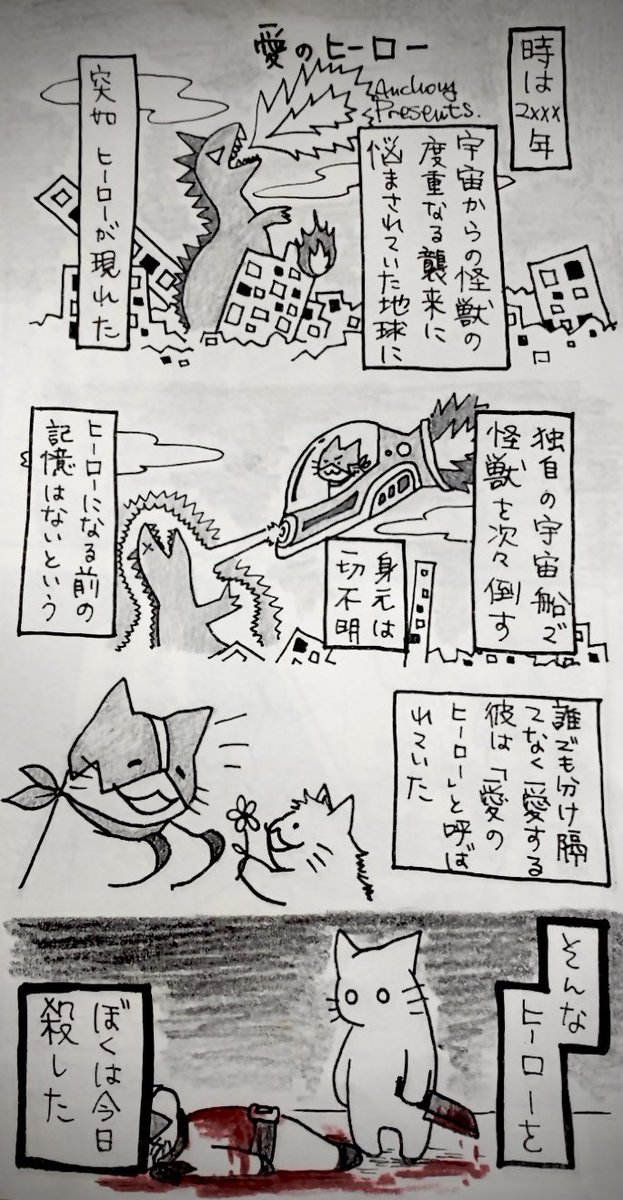 愛のヒーロー
Anchovy
Presents.
時は
2xxx
年
宇宙からの怪獣の
度重なる襲来に
悩まされていた地球に
突如 ヒーローが現れた
独自の宇宙船で
怪獣を次々倒す
身元は
一切不明
ヒーローになる前の
記憶はないという
誰でも分け隔
てなく愛する
彼は「愛の
ヒーロー」と呼ば
れていた
そんな
ヒーローを
ぼくは今日
殺した